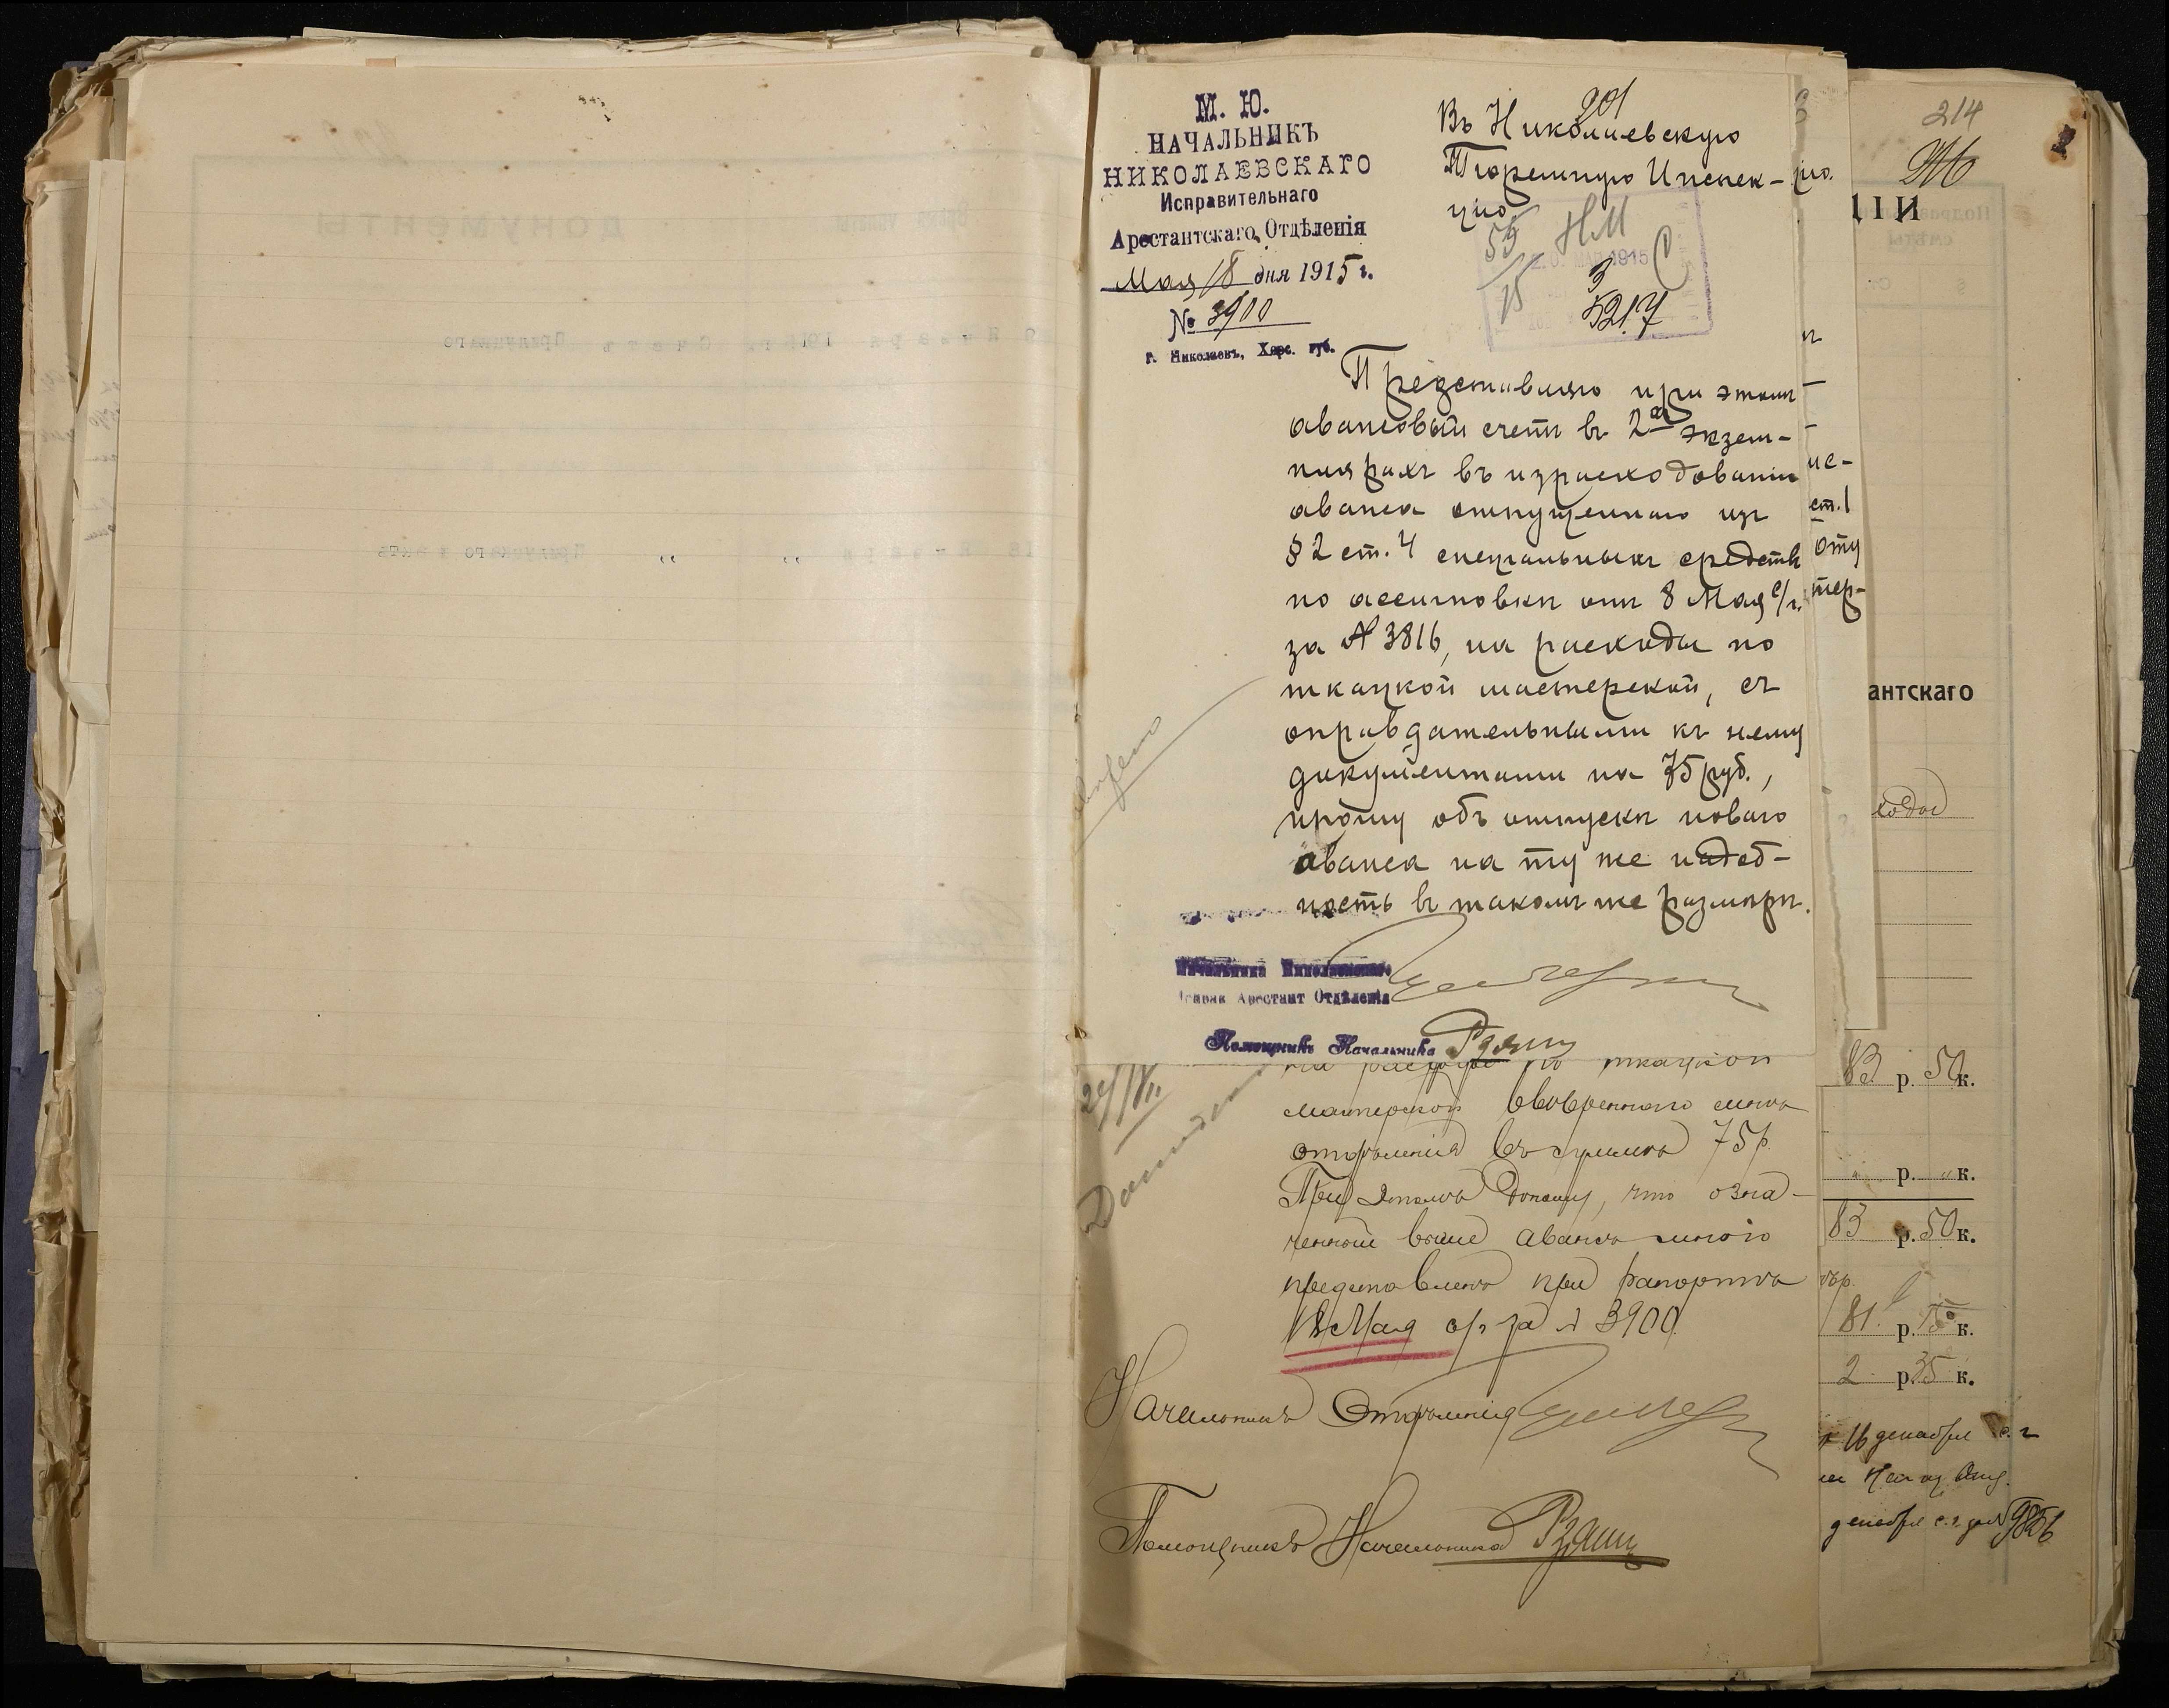 М. Ю.
НАЧАЛЬНИКЪ
НИКОЛАЕВСКАГО
Исправительнаго
Арестантскаго Отдѣленія
Мая 18 дня 1915 г.
№ 3900
г. Николаевъ, Херс. губ.
201
Въ Николаевскую
Тюремную Инспек-
цію
1915
5217
Представляю при этомъ
авансовый счетъ въ 2хъ экзем-
плярахъ въ израсходованіи
аванса отпущеннаго изъ
§ 2 ст. 4 спеціальныхъ средствъ
по ассигновкѣ отъ 8 Мая с/г.
за № 3816, на расходы по
ткацкой мастерской, съ
оправдательными къ нему
документами на 75 руб.,
прошу объ отпускѣ новаго
аванса на ту же надоб-
ность въ такомъ же размѣрѣ.
Начальника Николаевскаго
Исправ Арестант Отдѣленія
Помощникъ Начальника
на расходы по ткацкой
мастерской ввѣреннаго мнѣ
отдѣленія въ суммѣ 75 р.
При этомъ доношу, что озна-
ченный выше авансъ мною
представленъ при рапортѣ
18 Мая с/г за № 3900
Начальникъ Отдѣленія
Помощникъ Начальника
214
ЦІИ
ст. 1
антскаго
ходы
83 р. 50 к.
" р. " к.
83 р. 50 к.
81 р. 15 к.
2 р. 35 к.
16 декабря с. г.
декабря с. г. за № 9856
ДОКУМЕНТЫ